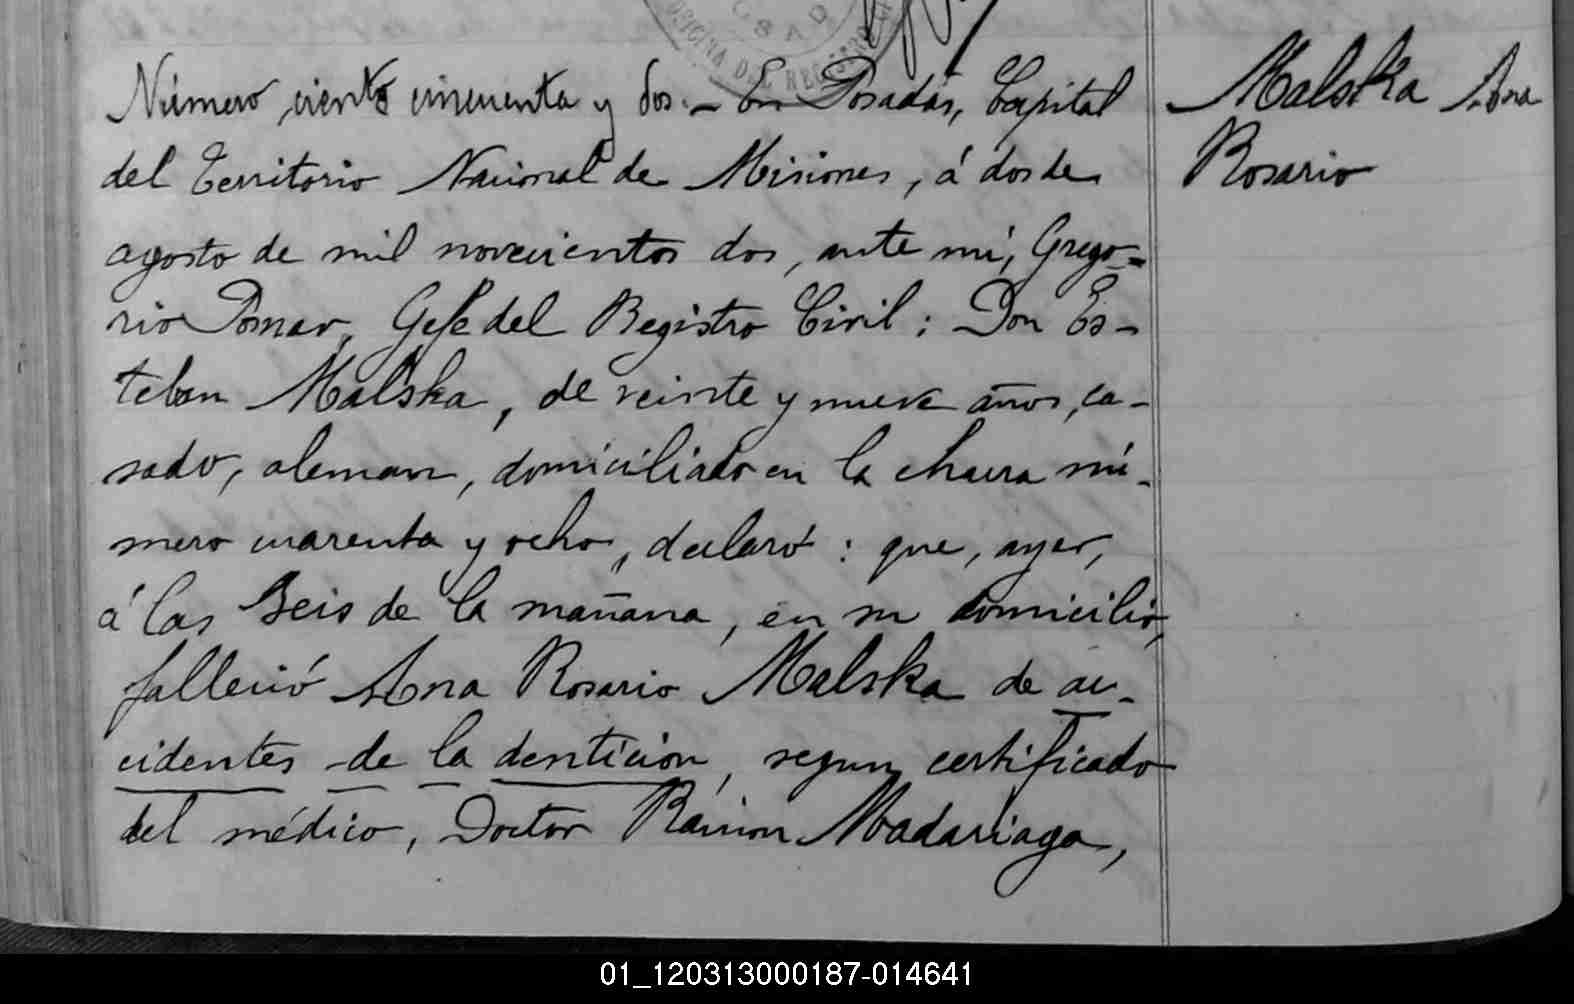 OFICINA DEL REGISTRO
Número ciento cincuenta y dos.- En Posadas, Capital
del Territorio Nacional de Misiones, á dos de
agosto de mil novecientos dos, ante mí, Grego-
rio Pomar, Gefe del Registro Civil: Don Es-
teban Malska, de veinte y nueve años, ca-
sado, aleman, domiciliado en la chacra nú-
mero cuarenta y ocho, declaró: que, ayer,
á las seis de la mañana, en su domicilio,
falleció Ana Rosario Malska de ac-
cidentes de la dentición, segun certificado
del médico, Doctor Ramon Madariaga,
Malska Ana
Rosario
01_120313000187-014641